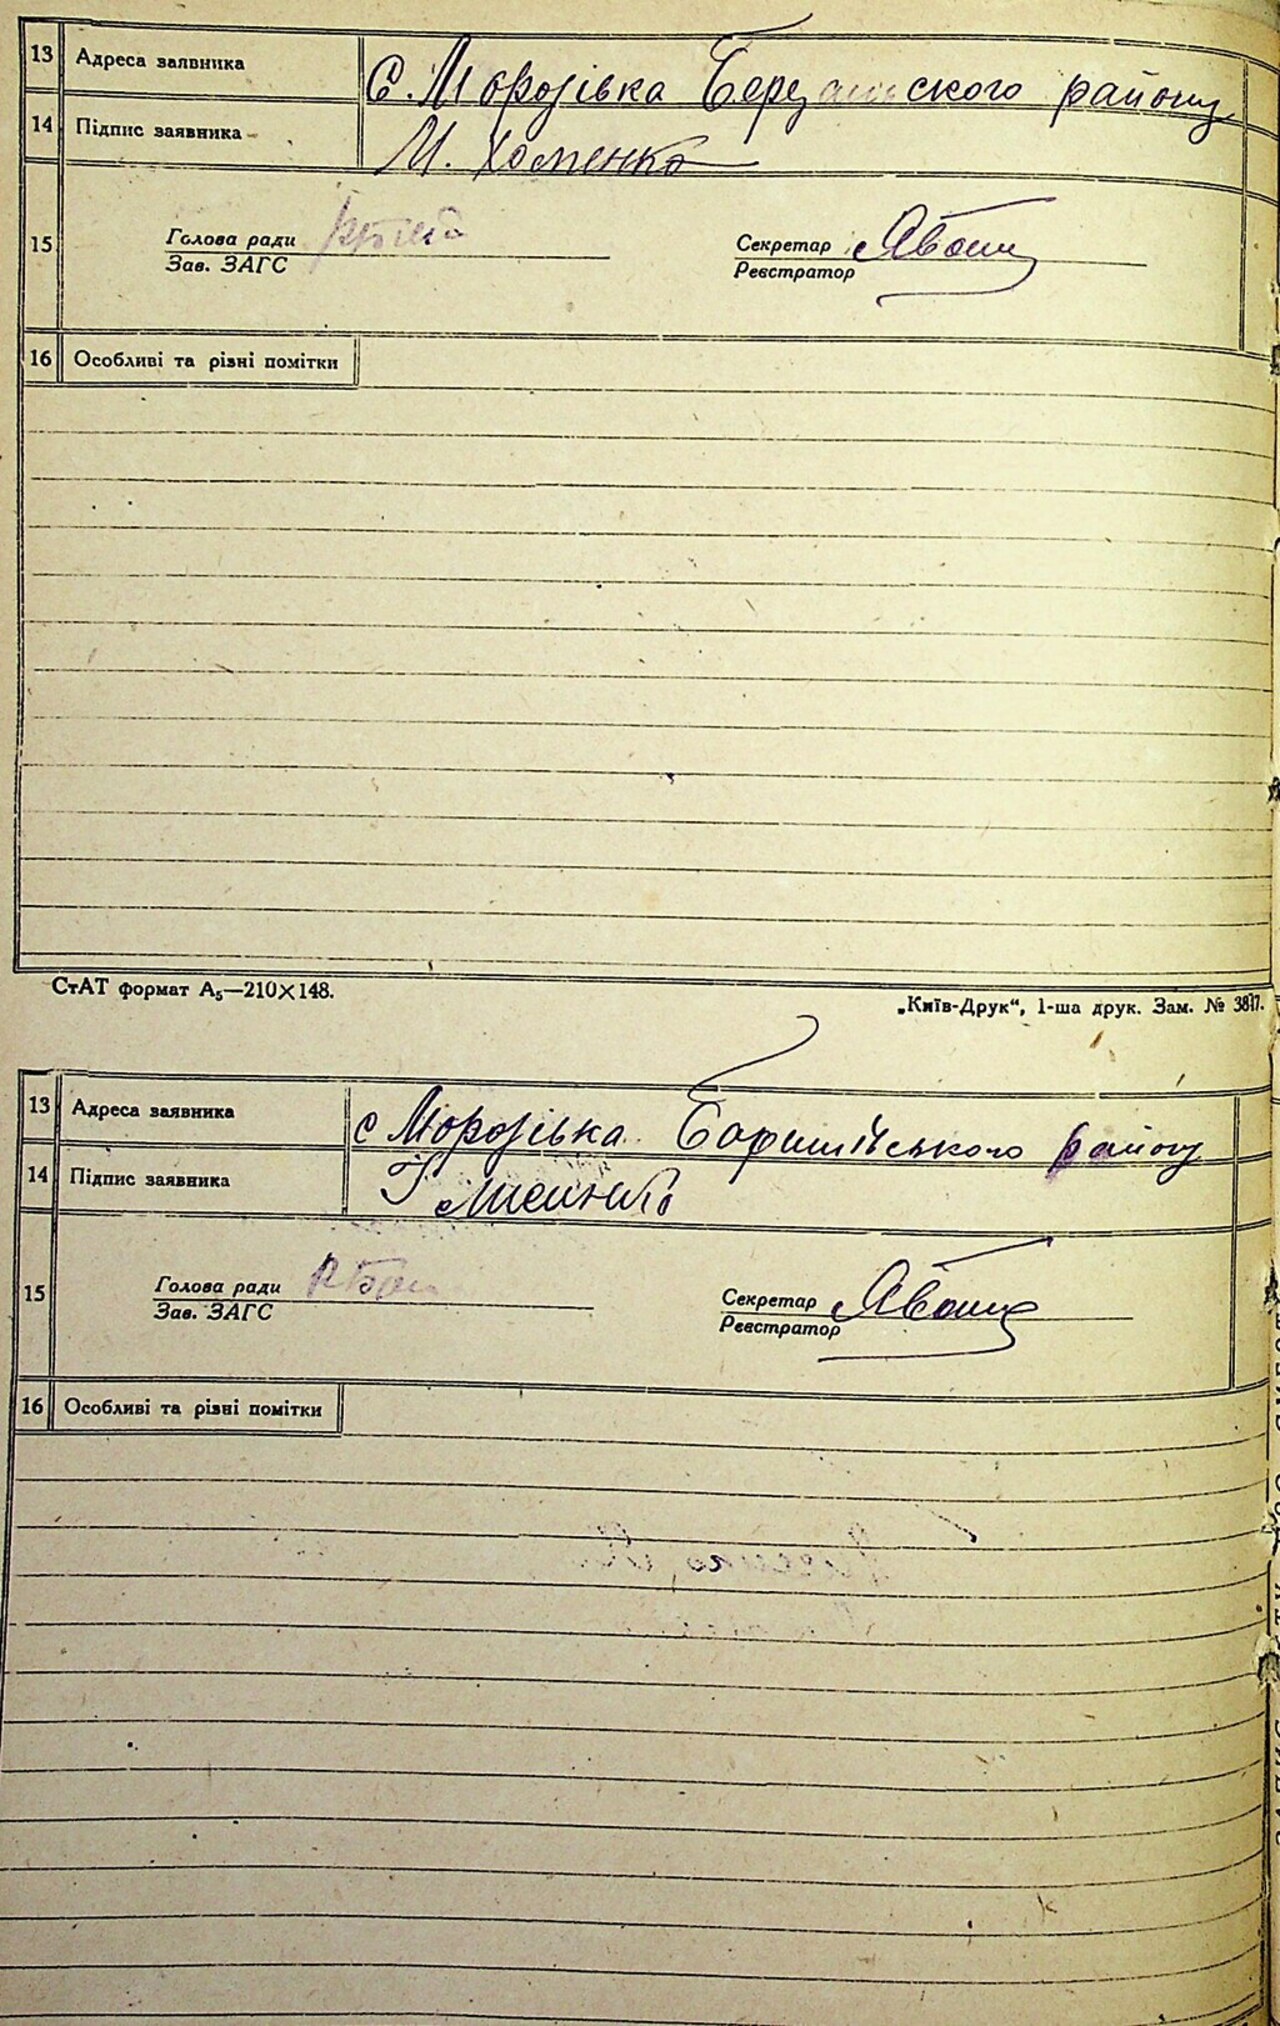 13 Адреса заявника С. Морозівка Березанского району
14 Підпис заявника М. Хоменко
15 Голова ради Секретар
Зав. ЗАГС Реєстратор
16 Особливі та різні помітки
СтАТ формат А₅—210×148. „Київ-Друк“, 1-ша друк. Зам. № 3817.
13 Адреса заявника с Морозівка Баришівського району
14 Підпис заявника
15 Голова ради Секретар
Зав. ЗАГС Реєстратор
16 Особливі та різні помітки